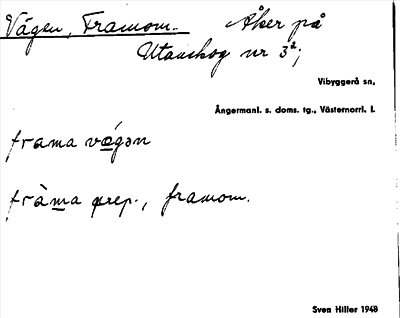 Vägen, Framom. Åker på
Utanskog nr 3²;
Vibyggerå sn,
Ångermanl. s. doms. tg., Västernorrl. l.
frama vǿgən
fràma prep., framom.
Sven Hiller 1948